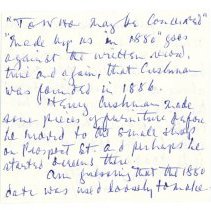 "To Who may be Concerned"
"Made by us in 1880" goes
against the written word,
time and again, that Cushman
was founded in 1886.
Henry Cushman made
some pieces of furniture before
he moved to the small shop
on Prospect St. and perhaps he
started ovens there
Am guessing that the 1880
date was used loosely to make